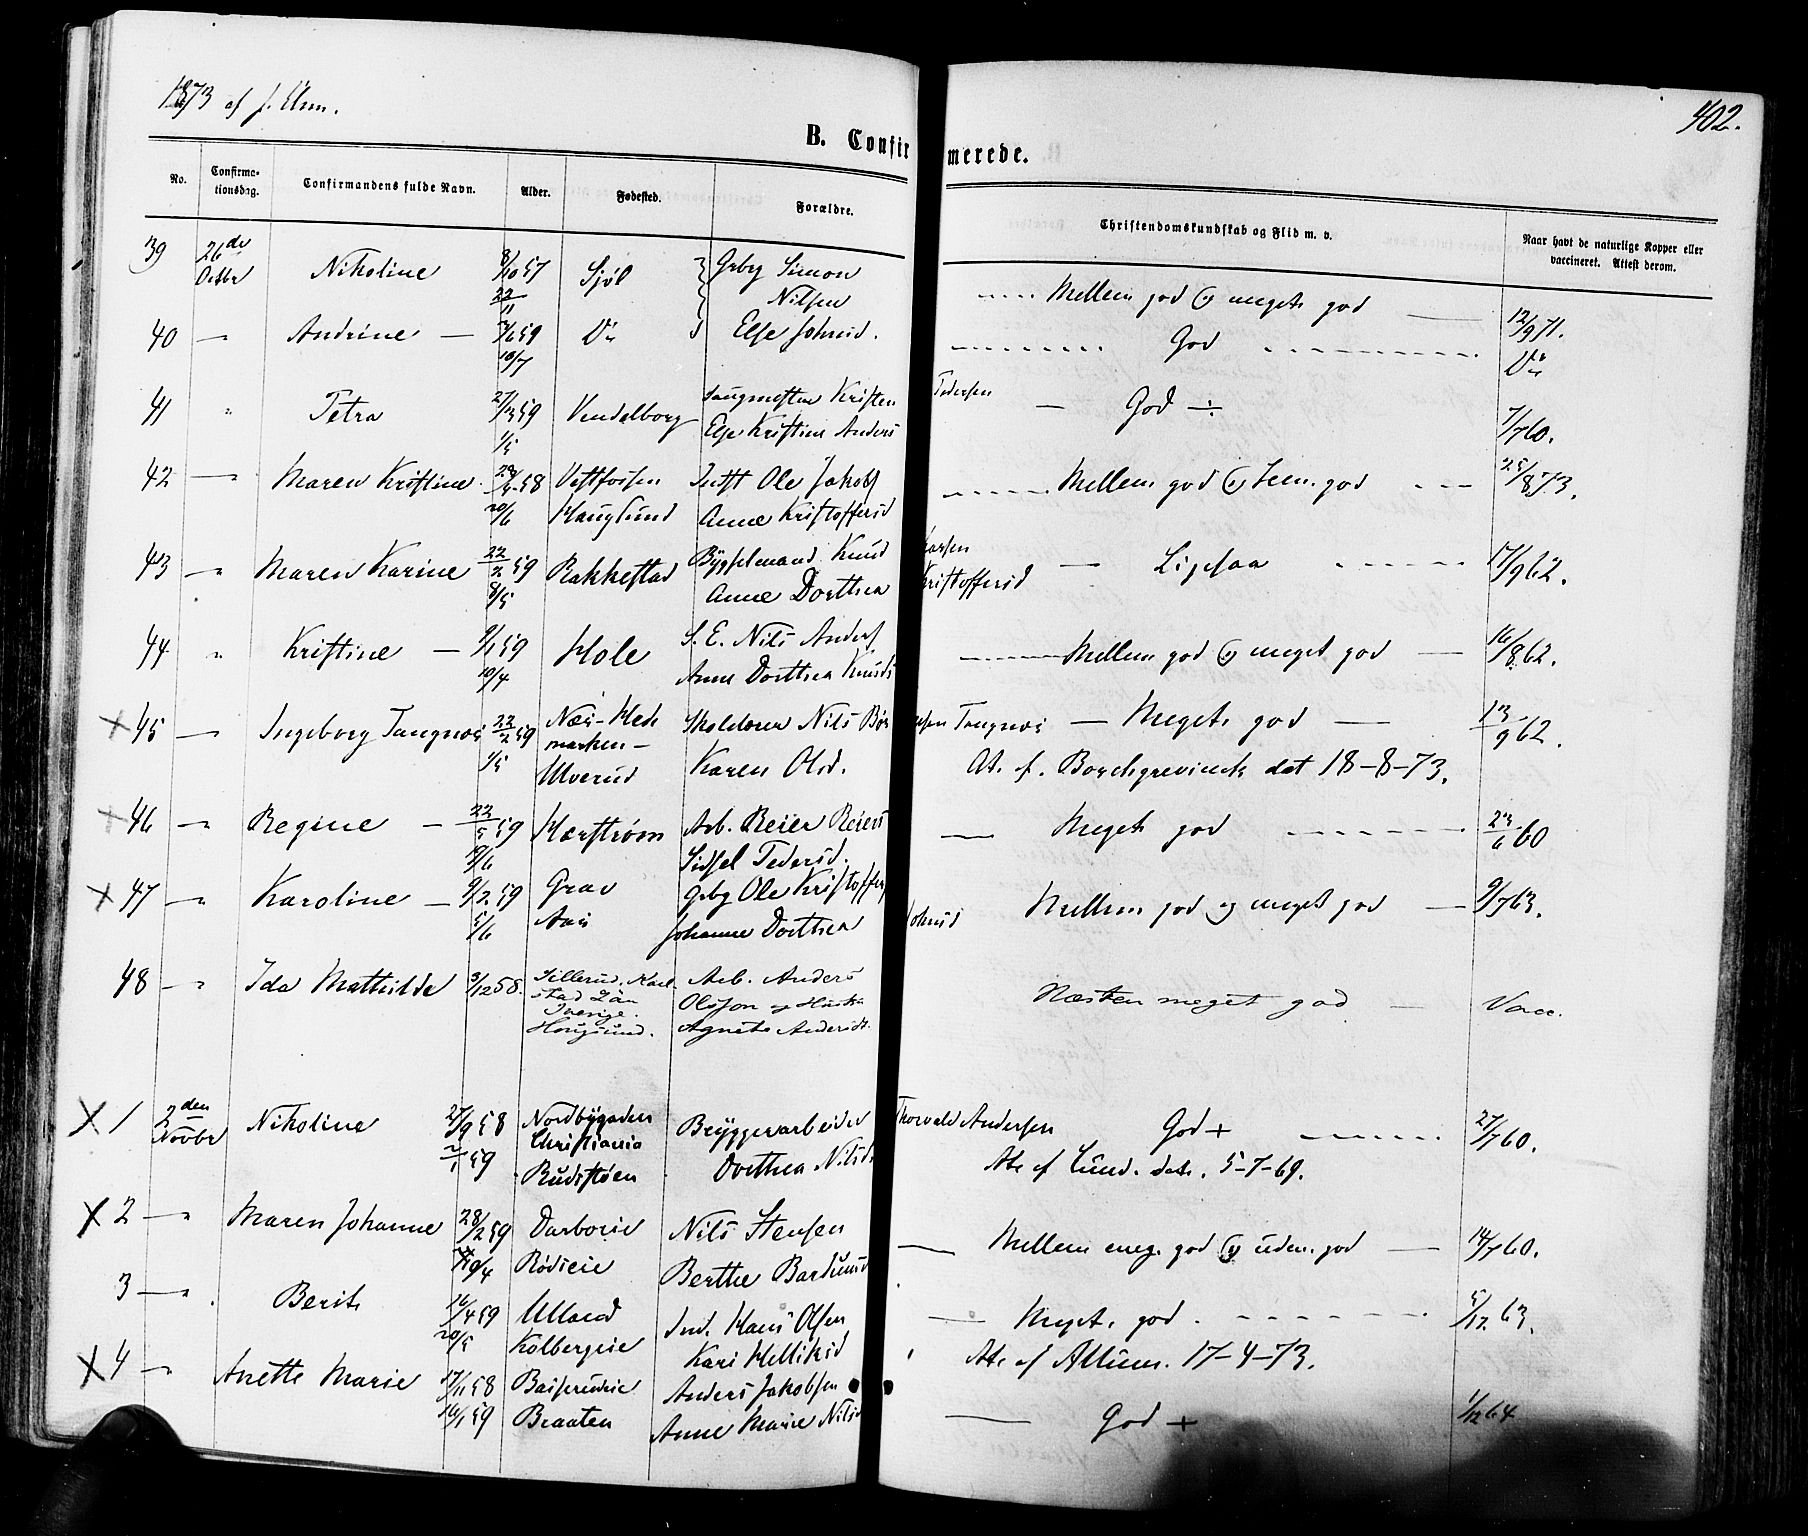 1873 af
402.
B. Confirmerede.
No.
Confirmationsdag.
Confirmandens fulde Navn.
Alder.
Fødested.
Forældre.
Christendomskundskab og Flid m. v.
Naar havt de naturlige Kopper eller vaccineret. Attest derom.
39 26de Octbr Nikoline 8/10 57 Grbg Simon Mellem god og meget god 12/9 71.
22/11 Nilsen
40 " Andrine 59 Do Else Johnsd. God Do
10/7
41 " Petra 59 Vendelborg Kristen Pedersen God ÷ 7/7 60.
1/5 Else Kristine Anders
42 " Maren Kristine 58 Vestfossen Indst Ole Jakobs Mellem god og god 25/8 73.
20/6 Hauglund Anne Kristoffersd
43 " Maren Karine 22/2 59 Rakkestad Knud Larsen Ligesaa 17/9 62.
8/5 Anne Dorthea Kristoffersd
44 " Kristine 9/1 59 Hole S. E. Nils Anders Mellem god og meget god 16/8 62.
10/4 Anne Dorthea Knuds
45 " Ingeborg Tangnæs 22/2 59 Næs-Hedemarken Skolelærer Nils Tangnæs Meget god 13/9 62.
1/5 Ulverud Karen Olsd. At. f. Borchgrevinck dat 18-8-73.
46 " Regine 22/5 59 Hærstrøm Arb. Reier Reiers Meget god 23/6 60
Sidsel Pedersd.
47 " Karoline 9/2 59 Grav Grbg Ole Kristoffer Mellem god og meget god 9/7 63.
5/6 Aas Johanne Dorthea Johnsd
48 " Ida Mathilde 3/12 58. Sillerud, Karlstad Län Sverige. Arb. Anders Næsten meget god Vacc.
Hougsund. Olsson og Hustru Agneta Andersdt.
1 2den Novbr Nikoline 27/9 58 Nordbygaden Christiania Bryggerarbeider Thorvald Andersen God + 27/7 60.
2/1 59 Rudstøen Dorthea Nilsd Att. af Lund. dat. 5-7-69.
2 " Maren Johanne 28/2 59 Darboeie Nils Stensen Mellem meg. god og uden. god 14/7 60.
10/4 Rødseie Berthe
3 " Berit 16/4 59 Ulland Ind. Hans Olsen Meget god 5/12 63.
20/5 Kolbergeie Kari Helliksd Att. af Allum. 17-4-73.
4 " Anette Marie 17/11 58 Anders Jakobsen God + 1/12 64
16/1 59 Braaten Anne Marie Nilsd